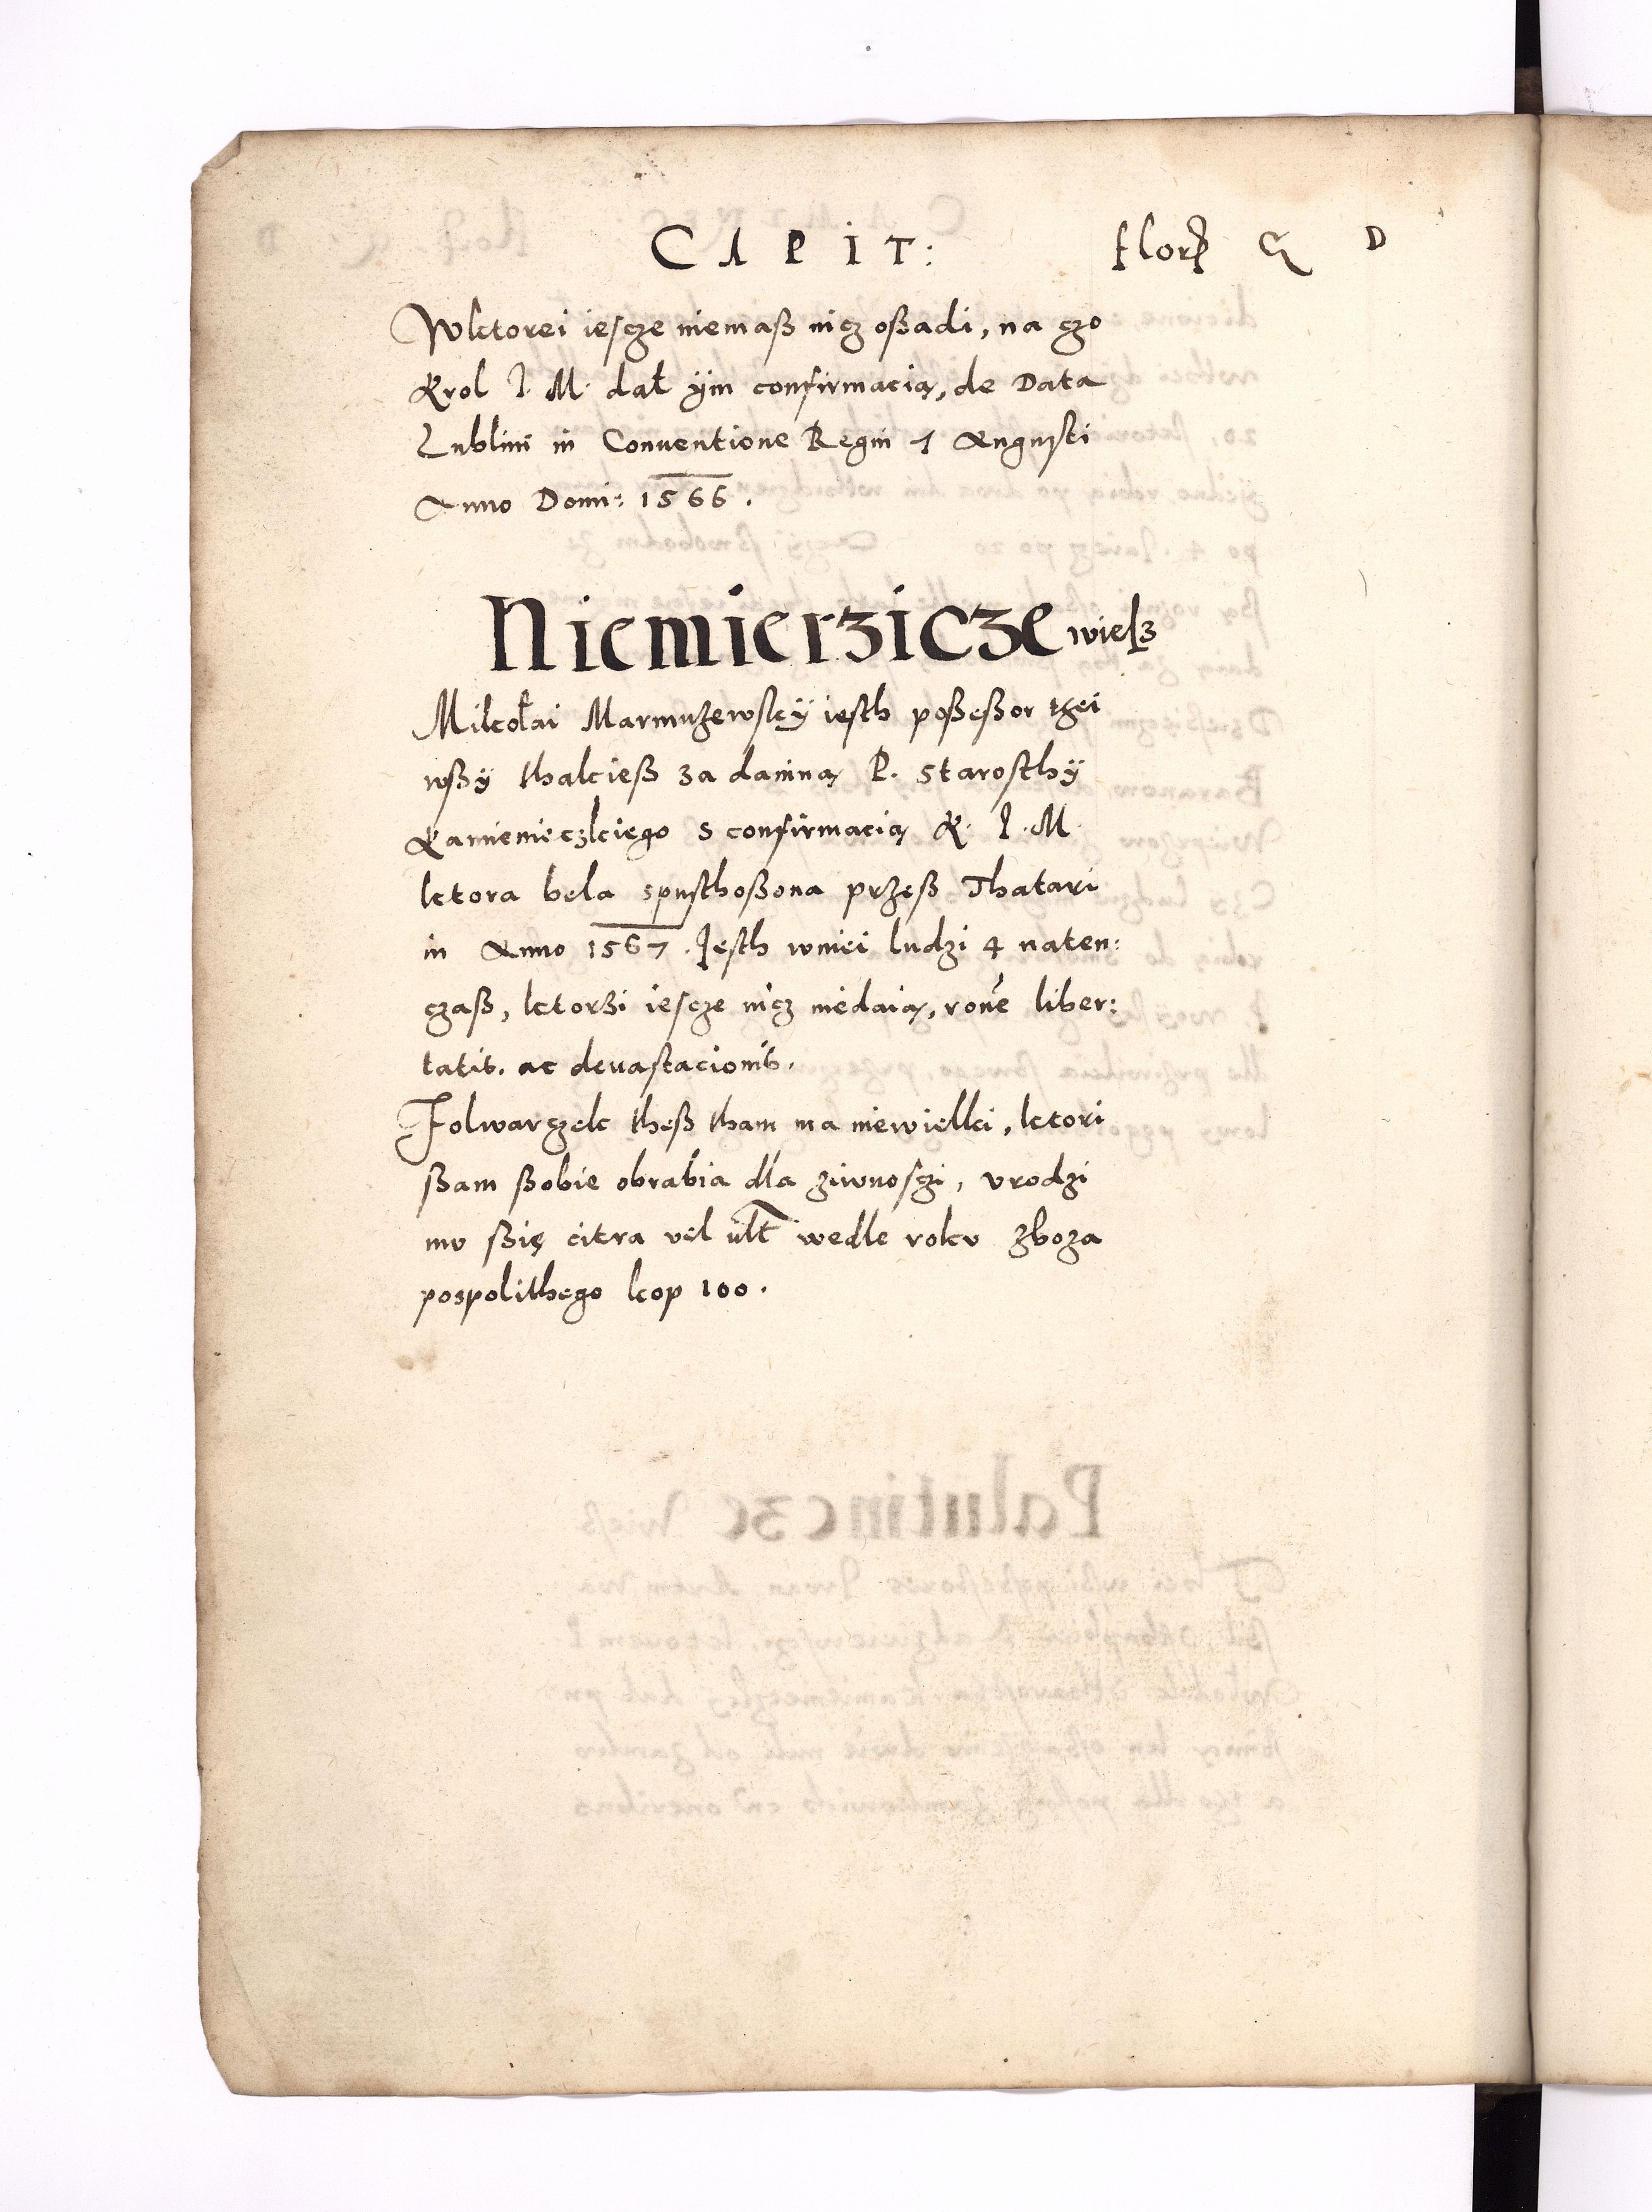 CAPIT: florꝑ G D
Wktorei iescze niemaß nicz oßadi, na czo
Krol J. M. dał ÿm confirmacią, de Data
Lublini in Conuentione Regni 1 Augusti
Anno Domi: 1566.
Niemierzicze wiesz
Mikołai Marmuzewskÿ iesth poßeßor tei
wßÿ thakieß za daniną P. Starosthÿ
Kamienieczkiego s confirmacią K. J. M.
ktora bela spusthoßona przeß Thatari
in Anno 1567. Jesth wniei ludzi 4 naten:
czaß, ktorzi iescze nicz niedaią, roñe liber:
tatis. ac deuastacionis.
Folwarczek theß tham ma niewielki, ktori
ßam ßobie obrabia dla ziwnosczi, vrodzi
mv ßię citra vel ult wedle rokv zboza
pospolithego kop 100.